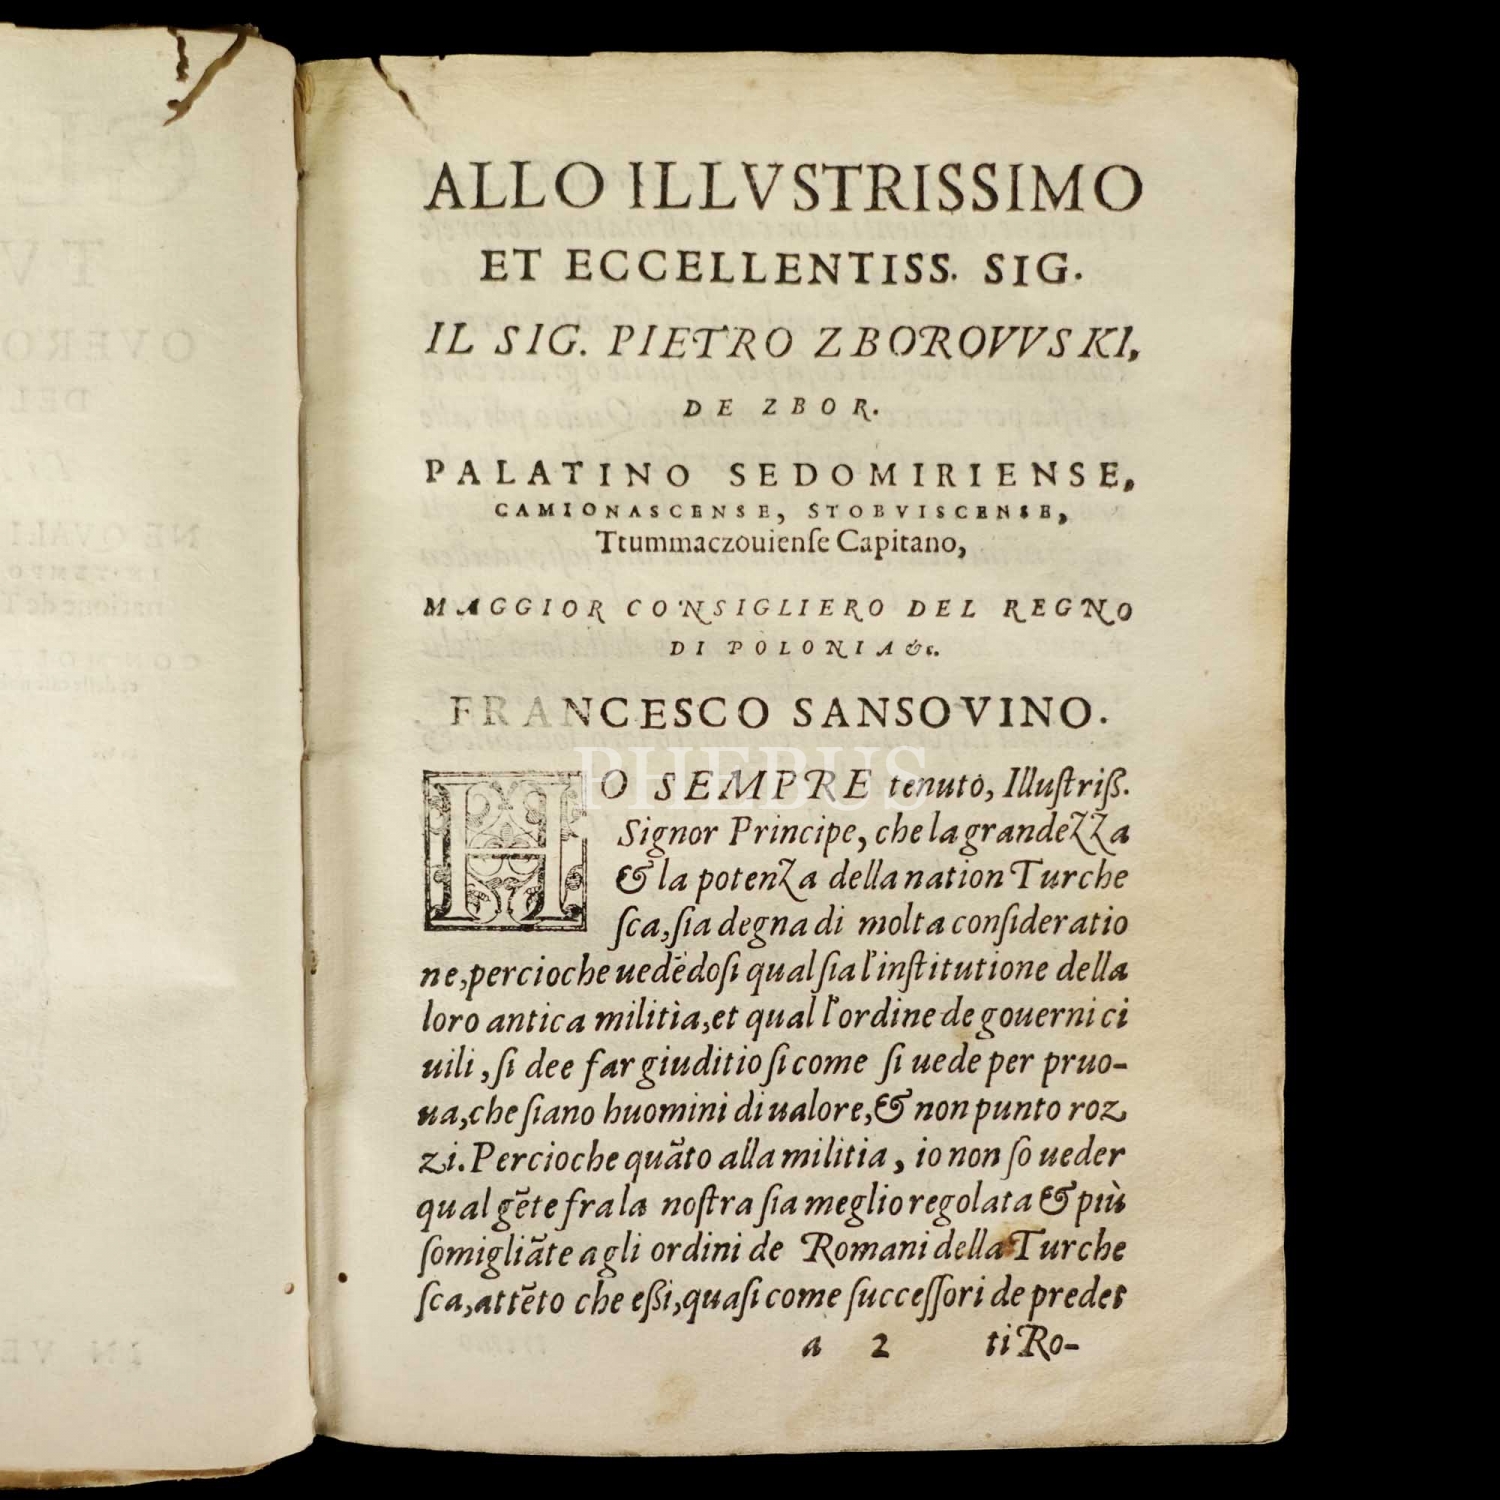 ALLO ILLVSTRISSIMO
ET ECCELLENTISS. SIG.
IL SIG. PIETRO ZBOROVVSKI,
DE ZBOR.
PALATINO SEDOMIRIENSE,
CAMIONASCENSE, STOBVISCENSE,
Ttummaczouienſe Capitano,
MAGGIOR CONSIGLIERO DEL REGNO
DI POLONIA &c.
FRANCESCO SANSOVINO.
HO SEMPRE tenuto, Illuſtriß.
Signor Principe, che la grandezza
& la potenza della nation Turche
ſca, ſia degna di molta conſideratio
ne, percioche uedēdoſi qual ſia l'inſtitutione della
loro antica militia, et qual l'ordine de gouerni ci
uili, ſi dee far giuditio ſi come ſi uede per pruo-
ua, che ſiano huomini di ualore, & non punto roz
zi. Percioche quāto alla militia, io non ſo ueder
qual gēte fra la noſtra ſia meglio regolata & più
ſomigliāte a gli ordini de Romani della Turche
ſca, attēto che eßi, quaſi come ſucceſſori de predet
a 2 ti Ro-
PHEBUS